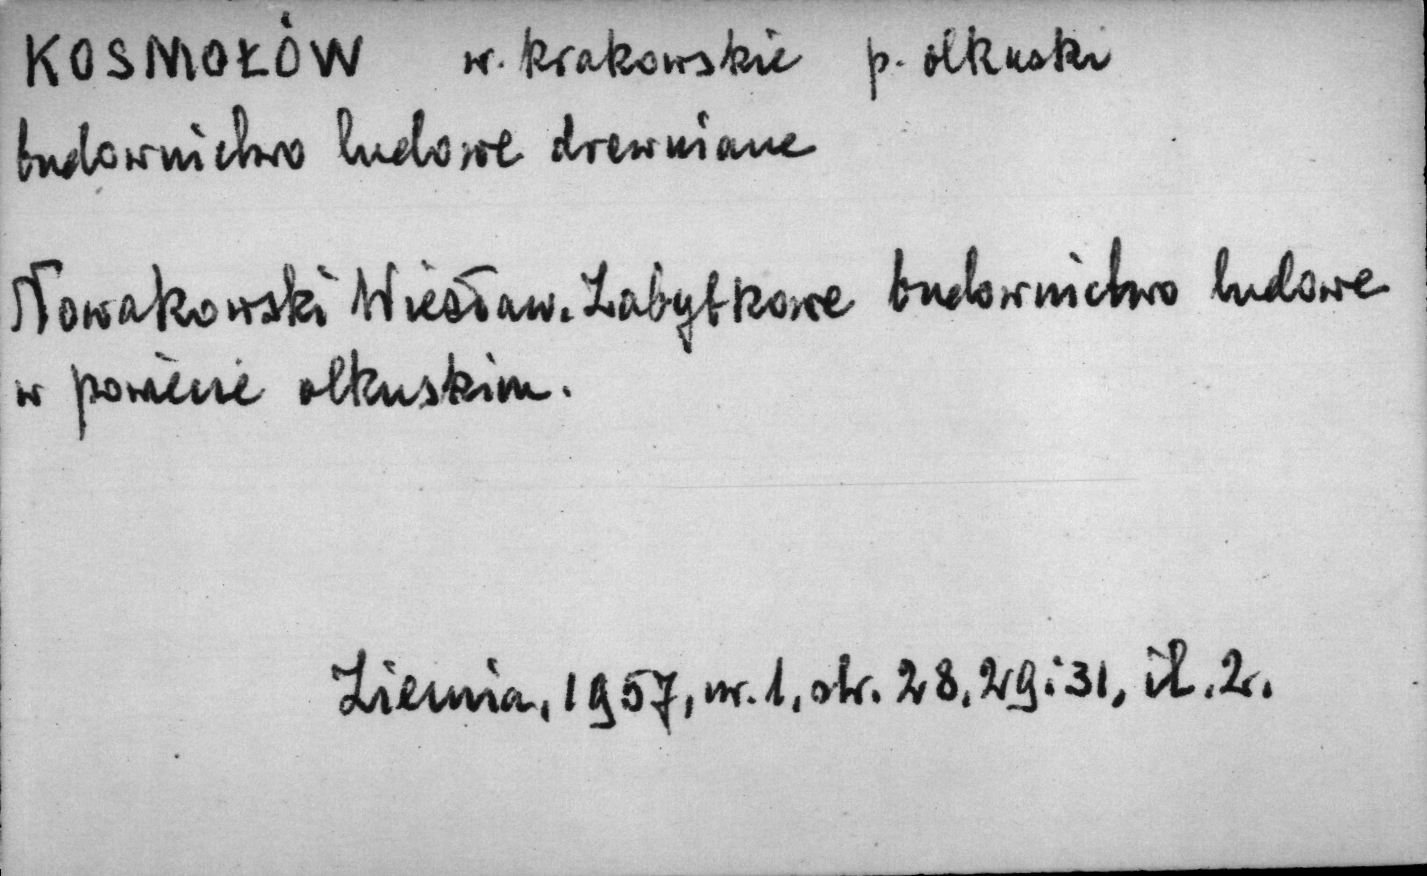 KOSMOŁÓW w. krakowskie p. olkuski
budownictwo ludowe drewniane
Nowakowski Wiesław. Zabytkowe budownictwo ludowe
w powiecie olkuskim.
Ziemia, 1957, nr. 1, str. 28, 29 i 31, il. 2.